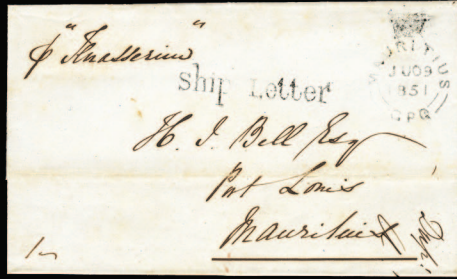 p "Tenasserim"
Ship Letter
MAURITIUS
JU 09
1851
GPO
H. J. Bell Esq
Port Louis
Mauritius
1/-